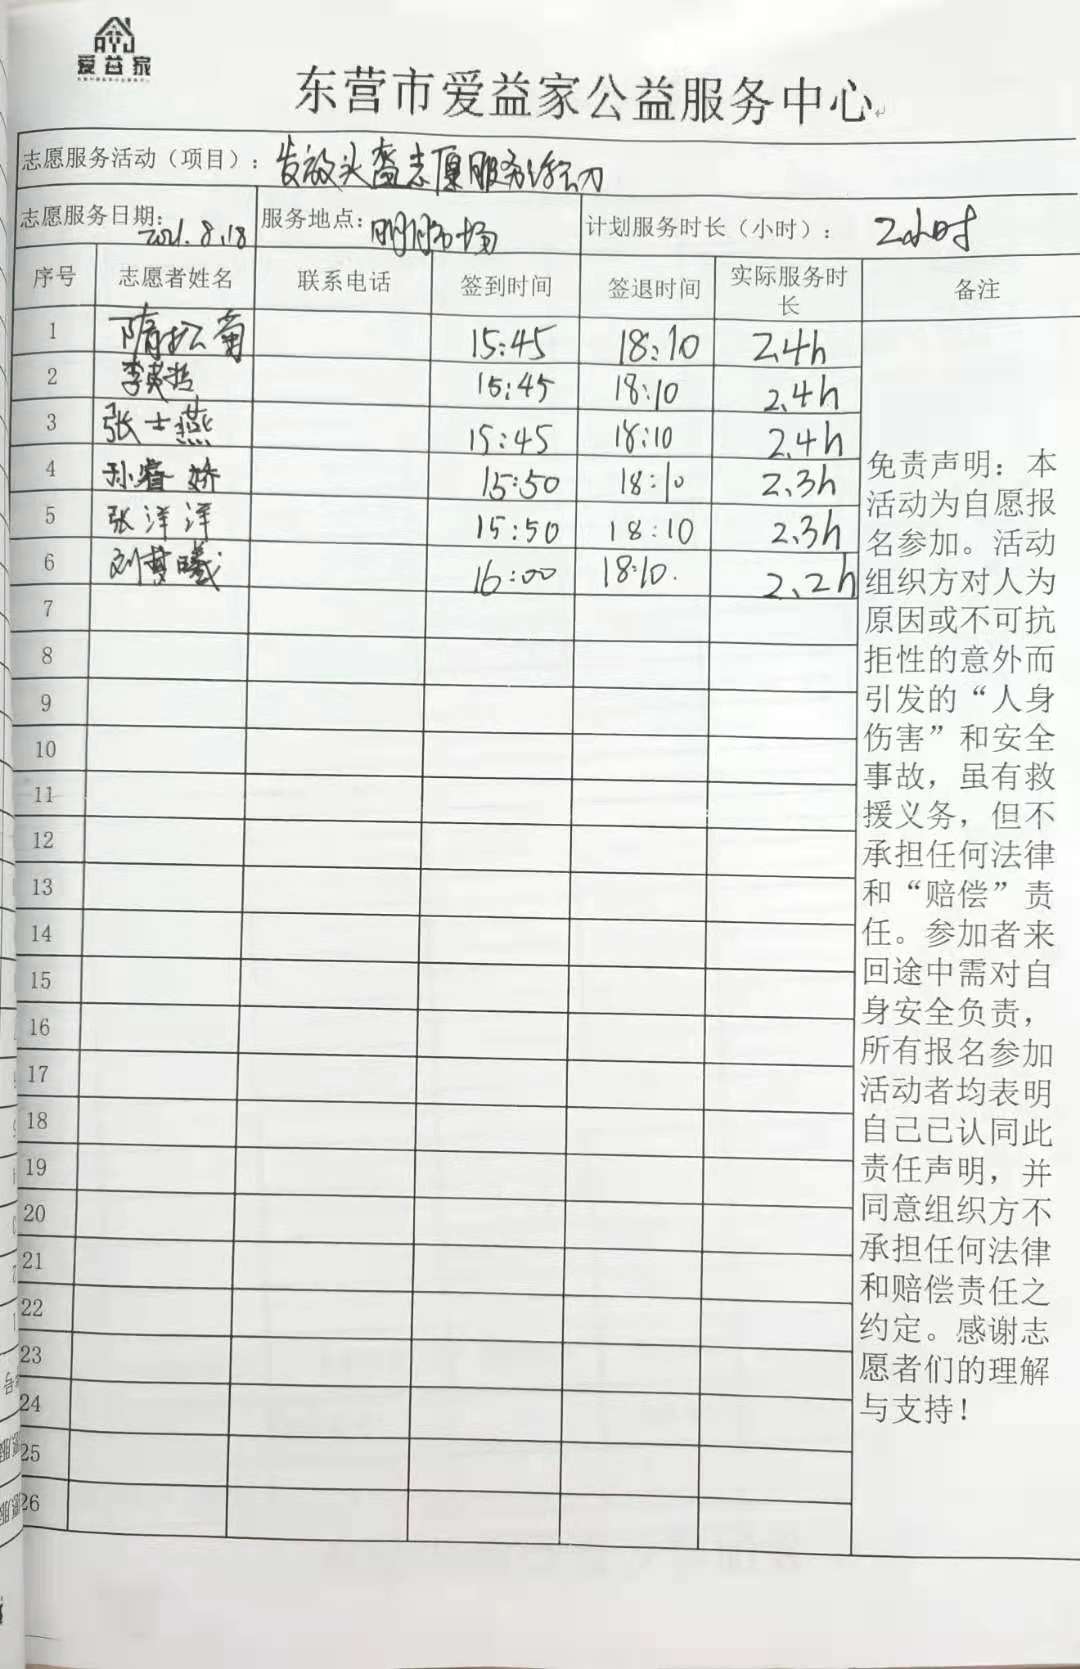 爱益家
东营市爱益家公益服务中心
志愿服务活动（项目）：发放头盔志愿服务活动
志愿服务日期：2021.8.18 服务地点：明月市场 计划服务时长（小时）：2小时
序号 志愿者姓名 联系电话 签到时间 签退时间 实际服务时长 备注
1 隋松菊 15:45 18:10 2.4h
2 李英哲 15:45 18:10 2.4h
3 张士燕 15:45 18:10 2.4h
4 孙睿娇 15:50 18:10 2.3h
5 张洋洋 15:50 18:10 2.3h
6 刘梦曦 16:00 18:10. 2.2h
7
8
9
10
11
12
13
14
15
16
17
18
19
20
21
22
23
24
25
26
免责声明：本
活动为自愿报
名参加。活动
组织方对人为
原因或不可抗
拒性的意外而
引发的“人身
伤害”和安全
事故，虽有救
援义务，但不
承担任何法律
和“赔偿”责
任。参加者来
回途中需对自
身安全负责，
所有报名参加
活动者均表明
自己已认同此
责任声明，并
同意组织方不
承担任何法律
和赔偿责任之
约定。感谢志
愿者们的理解
与支持！